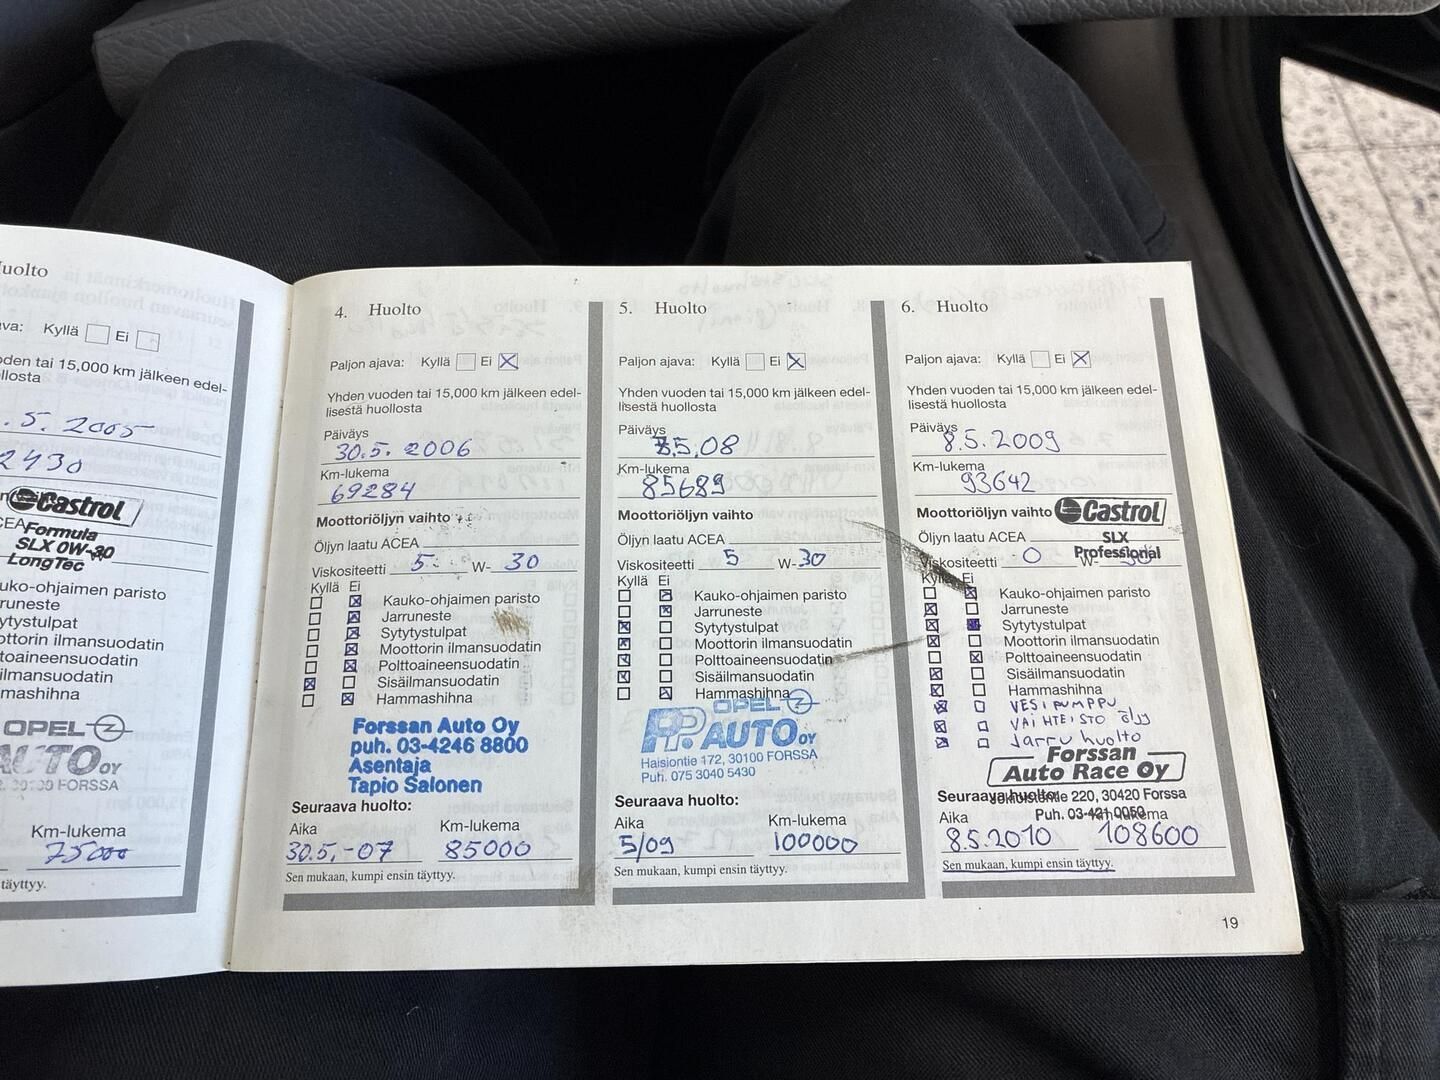 Huolto
Kyllä Ei
oden tai 15,000 km jälkeen edel-
llosta
5. 2005
2430
Castrol
CEA Formula
SLX 0W-30
LongTec
uko-ohjaimen paristo
rruneste
ytystulpat
oottorin ilmansuodatin
ttoaineensuodatin
ilmansuodatin
mashihna
OPEL
AUTO OY
30100 FORSSA
Km-lukema
75000
täyttyy.
4. Huolto
Paljon ajava: Kyllä Ei
Yhden vuoden tai 15,000 km jälkeen edel-
lisestä huollosta
Päiväys
30.5. 2006
Km-lukema
69284
Moottoriöljyn vaihto
Öljyn laatu ACEA
Viskositeetti 5 W- 30
Kyllä Ei
Kauko-ohjaimen paristo
Jarruneste
Sytytystulpat
Moottorin ilmansuodatin
Polttoaineensuodatin
Sisäilmansuodatin
Hammashihna
Forssan Auto Oy
puh. 03-4246 8800
Asentaja
Tapio Salonen
Seuraava huolto:
Aika Km-lukema
30.5.-07 85000
Sen mukaan, kumpi ensin täyttyy.
5. Huolto
Paljon ajava: Kyllä Ei
Yhden vuoden tai 15,000 km jälkeen edel-
lisestä huollosta
Päiväys
5.08
Km-lukema
85689
Moottoriöljyn vaihto
Öljyn laatu ACEA
Viskositeetti 5 W-30
Kyllä Ei
Kauko-ohjaimen paristo
Jarruneste
Sytytystulpat
Moottorin ilmansuodatin
Polttoaineensuodatin
Sisäilmansuodatin
Hammashihna
OPEL
PP AUTO OY
Haisiontie 172, 30100 FORSSA
Puh. 075 3040 5430
Seuraava huolto:
Aika Km-lukema
5/09 100000
Sen mukaan, kumpi ensin täyttyy.
6. Huolto
Paljon ajava: Kyllä Ei
Yhden vuoden tai 15,000 km jälkeen edel-
lisestä huollosta
Päiväys
8.5.2009
Km-lukema
93642
Moottoriöljyn vaihto Castrol
Öljyn laatu ACEA SLX
Professional
Viskositeetti 0 W- 30
Kyllä Ei
Kauko-ohjaimen paristo
Jarruneste
Sytytystulpat
Moottorin ilmansuodatin
Polttoaineensuodatin
Sisäilmansuodatin
Hammashihna
VESIPUMPPU
VAIHTEISTO öljy
Jarru huolto
Forssan
Auto Race Oy
Seuraava huolto:
220, 30420 Forssa
Puh. 03-421 0050
Aika Km-lukema
8.5.2010 108600
Sen mukaan, kumpi ensin täyttyy.
19